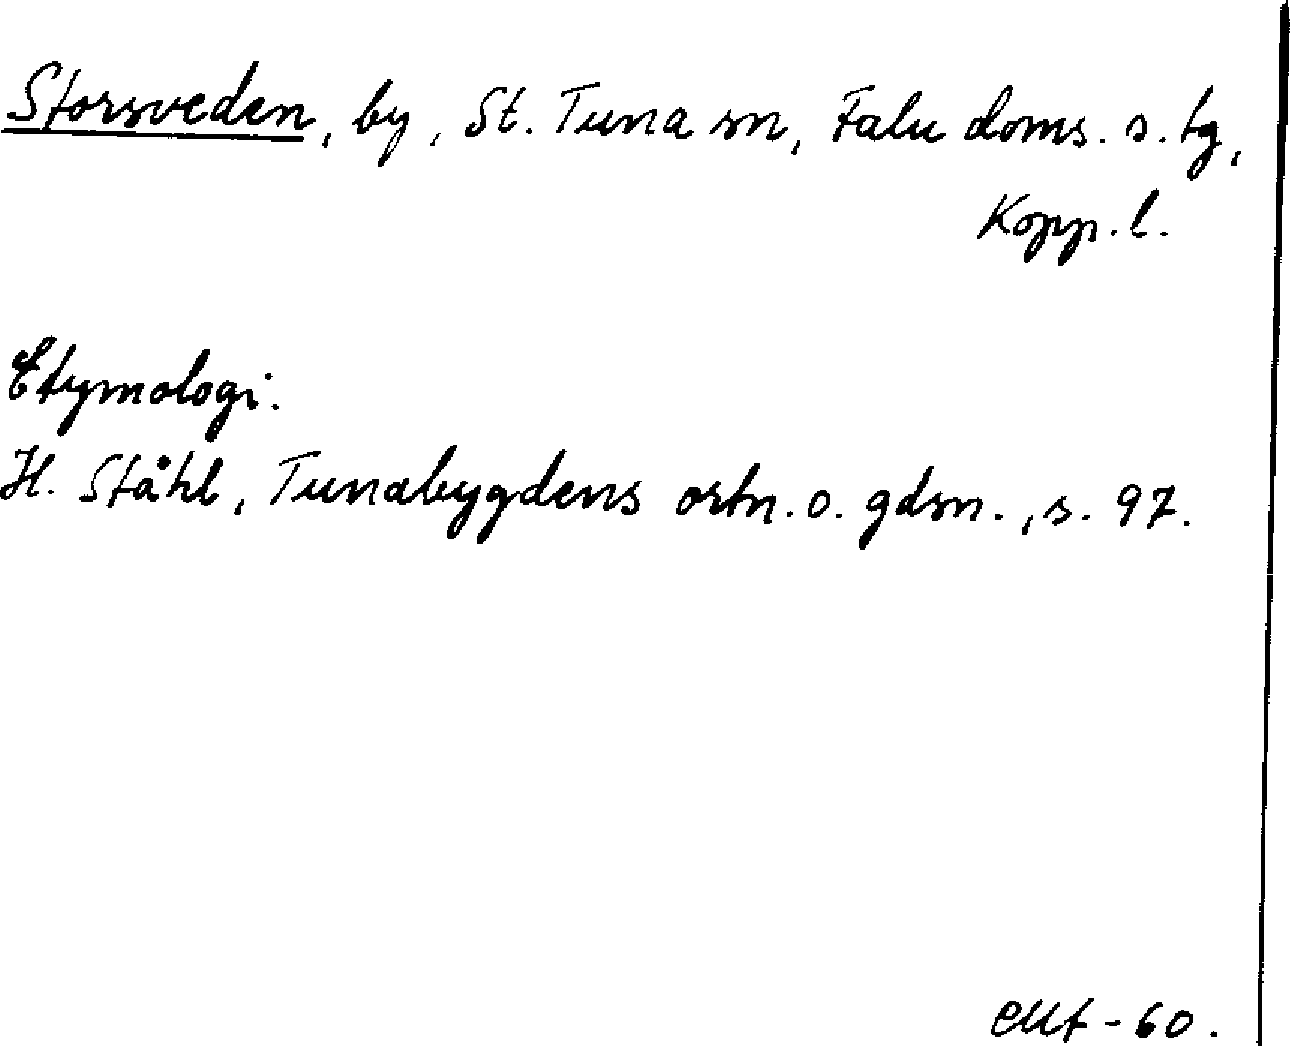 Storsveden, by, St. Tuna sn, Falu doms. s. tg,
Kopp. l.
Etymologi:
H. Ståhl, Tunabygdens ortn. o. gdsn., s. 97.
-60.